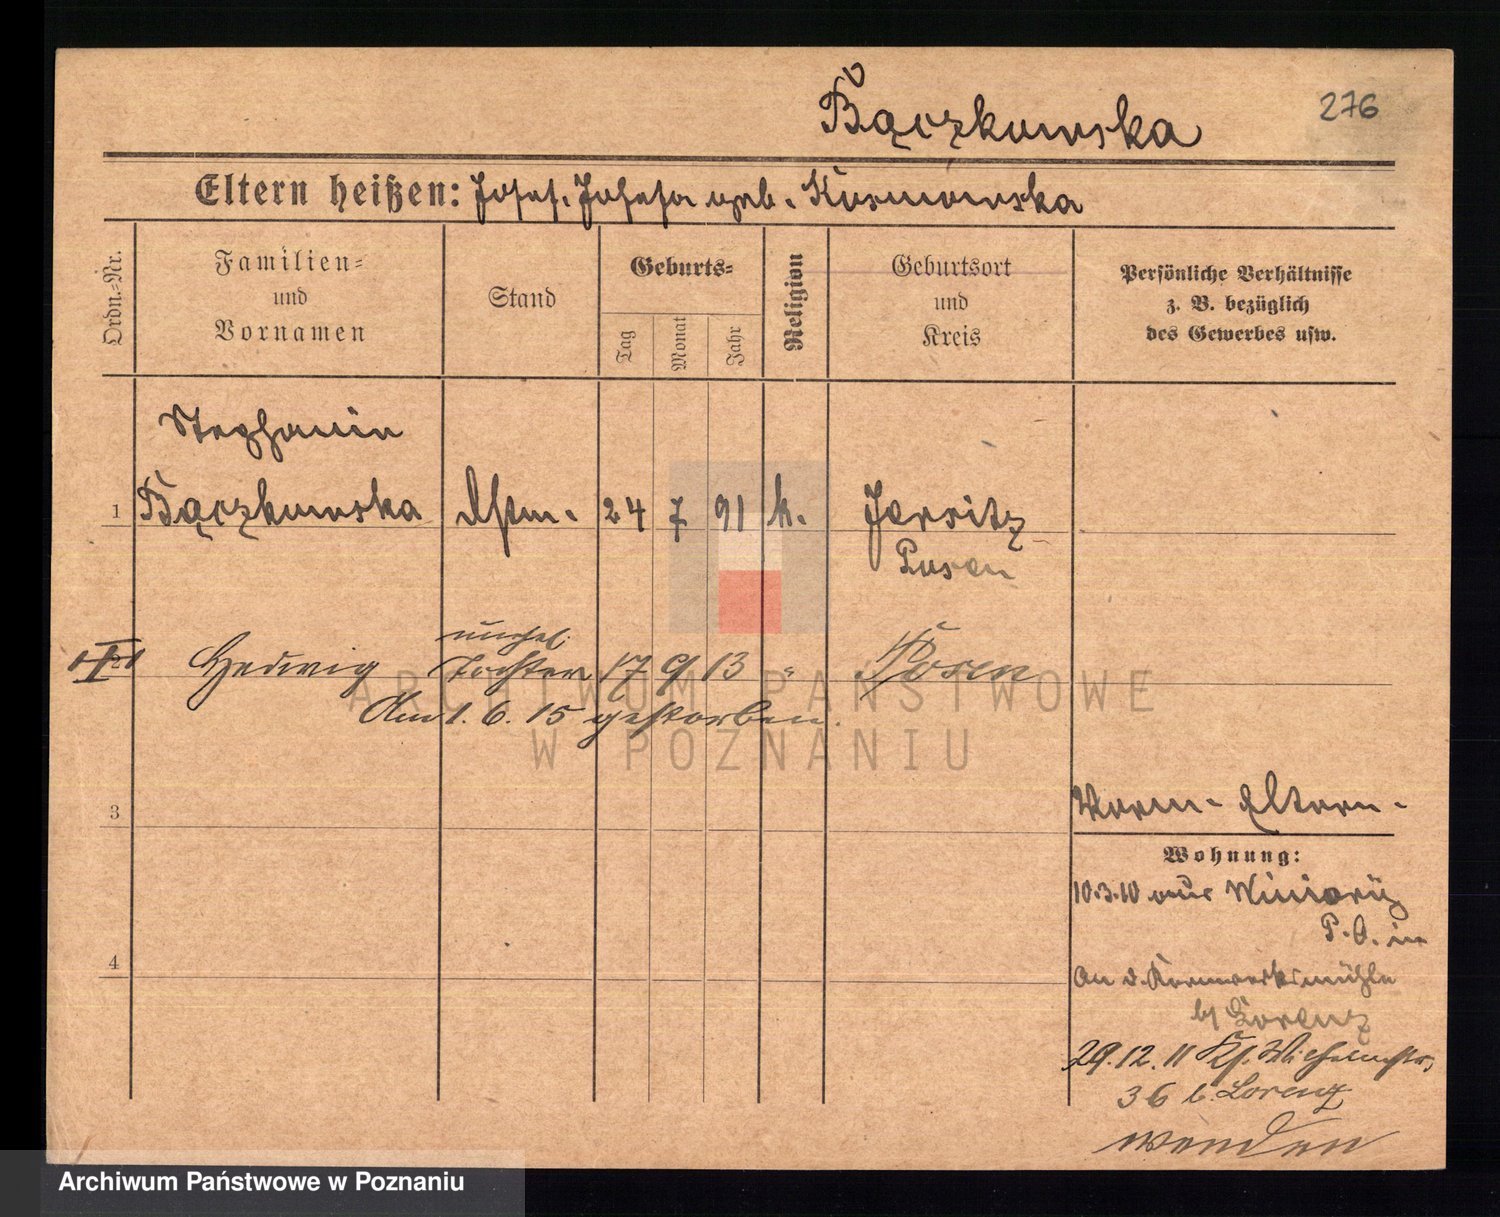 Bączkowska
276
Eltern heißen: Josef. Josefa geb. Kosmowska
Ordn.-Nr.
Familien-
und
Vornamen
Stand
Geburts-
Tag
Monat
Jahr
Religion
Geburtsort
und
Kreis
Persönliche Verhältnisse
z. B. bezüglich
des Gewerbes usw.
Stephanie
1 Bączkowska 24 7 91 k. Jersitz
Posen
unehel.
Hedwig Tochter 17 9 13 " Posen
Am 1. 6. 15 gestorben.
3
4
Vorm- Eltern-
Wohnung:
10.3.10 aus Winiary
P. O. in
An d. Kornwerksmühle
b/ Lorenz
29.12.11 Kl. Wilhelmstr.
36 b. Lorenz
wenden
ARCHIWUM PAŃSTWOWE
W POZNANIU
Archiwum Państwowe w Poznaniu